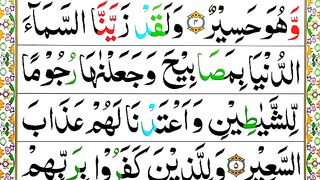 وَّهُوَ حَسِيْرٌ ۝٤ وَلَقَدْ زَيَّنَّا السَّمَآءَ
الدُّنْيَا بِمَصَابِيْحَ وَجَعَلْنٰهَا رُجُوْمًا
لِّلشَّيٰطِيْنِ وَاَعْتَدْنَا لَهُمْ عَذَابَ
السَّعِيْرِ ۝٥ وَلِلَّذِيْنَ كَفَرُوْا بِرَبِّهِمْ